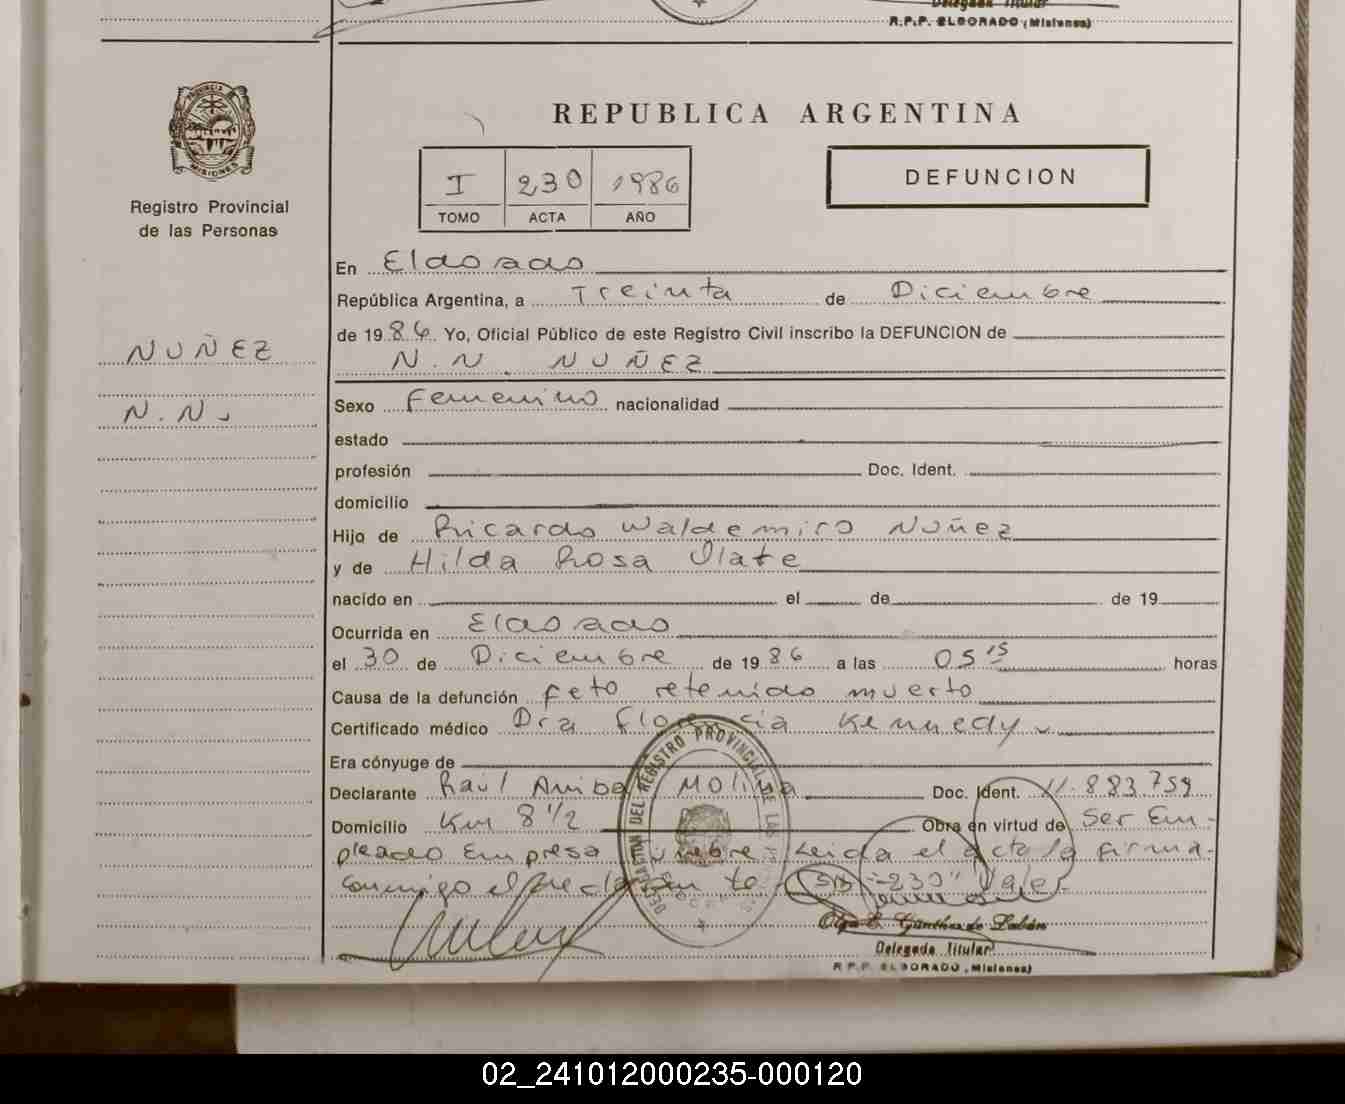 Delegada Titular
R.P.P. ELDORADO (Misiones)
PROVINCIA DE
MISIONES
Registro Provincial
de las Personas
NUÑEZ
N.N.
REPUBLICA ARGENTINA
I 230 1986
TOMO ACTA AÑO
DEFUNCION
En Eldorado
República Argentina, a Treinta de Diciembre
de 1986. Yo, Oficial Público de este Registro Civil inscribo la DEFUNCION de
N.N. NUÑEZ
Sexo Femenino nacionalidad
estado
profesión Doc. Ident.
domicilio
Hijo de Ricardo Waldemiro Nuñez
y de Hilda Rosa Olate
nacido en el de de 19
Ocurrida en Eldorado
el 30 de Diciembre de 1986 a las 05 15 horas
Causa de la defunción feto retenido muerto
Certificado médico Dra Florencia Kennedy
Era cónyuge de
Declarante Raúl Anibal Molina Doc. Ident. 11.883.759
Domicilio Km 8 1/2 Obra en virtud de Ser Em-
pleado Empresa Funebre Leida el acta la firma
conmigo el declarante "230" Vale.
DEL REGISTRO PROVINCIAL DE LAS
Olga E. Günther de Labán
Delegada Titular
R.P.P. ELDORADO, Misiones)
02_241012000235-000120